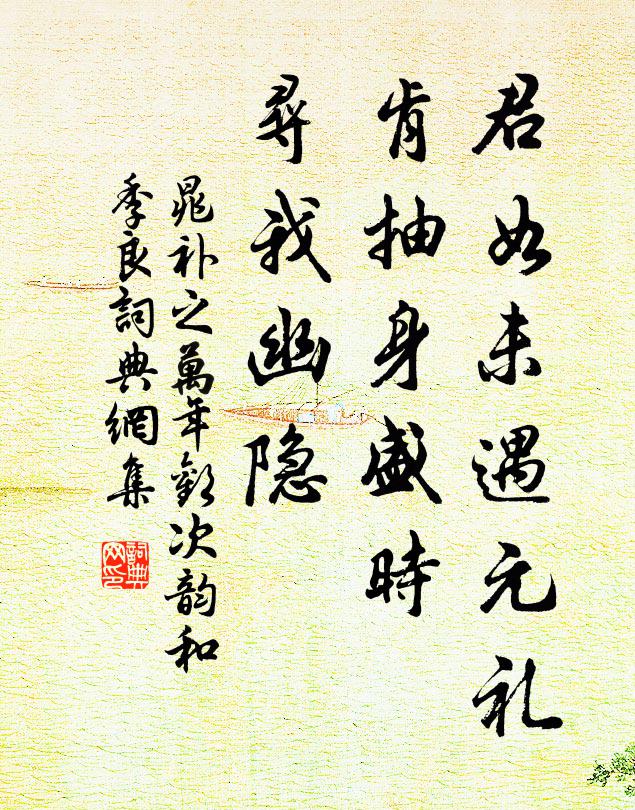 君如未遇元礼
肯抽身盛時
尋我幽隐
晁补之萬年歡次韵和
季良詞典網集
詞典网印